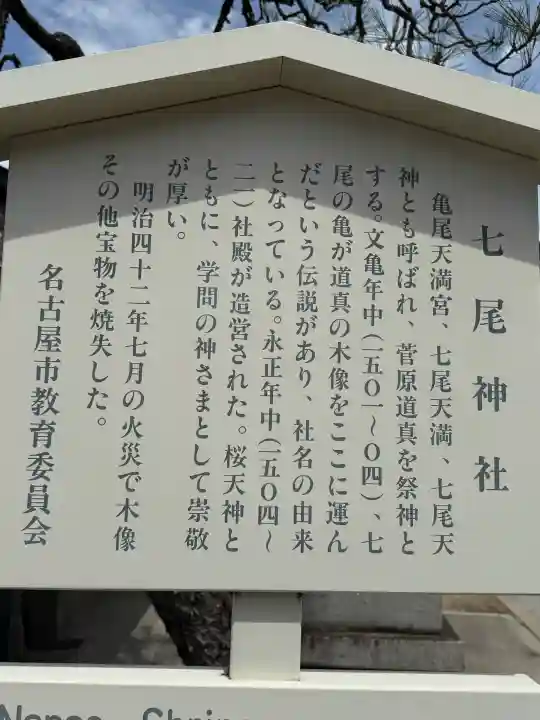 七尾神社
亀尾天満宮、七尾天満、七尾天
神とも呼ばれ、菅原道真を祭神と
する。文亀年中(一五〇一〜〇四)、七
尾の亀が道真の木像をここに運ん
だという伝説があり、社名の由来
となっている。永正年中(一五〇四〜
二一)社殿が造営された。桜天神と
ともに、学問の神さまとして崇敬
が厚い。
明治四十二年七月の火災で木像
その他宝物を焼失した。
名古屋市教育委員会
Nanao Shrine